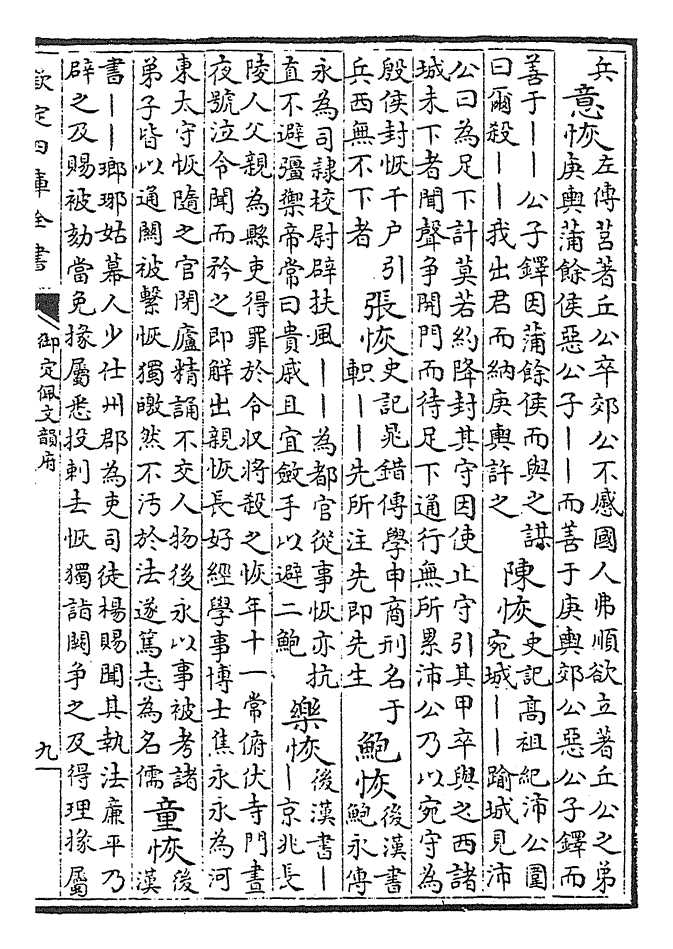 兵
意恢
左傳莒著丘公卒郊公不慼國人弗順欲立著丘公之弟
庚輿蒲餘侯惡公子——而善于庚輿郊公惡公子鐸而
善于——公子鐸因蒲餘侯而與之謀
曰爾殺——我出君而納庚輿許之
陳恢
史記高祖紀沛公圍
宛城——踰城見沛
公曰為足下計莫若約降封其守因使止守引其甲卒與之西諸
城未下者聞聲爭開門而待足下通行無所累沛公乃以宛守為
殷侯封恢千户引
兵西無不下者
張恢
史記鼂錯傳學申商刑名于
軹——先所注先即先生
鮑恢
後漢書
鮑永傳
永為司隸校尉辟扶風——為都官從事恢亦抗
直不避彊禦帝常曰貴戚且宜斂手以避二鮑
樂恢
後漢書—
—京兆長
陵人父親為縣吏得罪於令収將殺之恢年十一常俯伏寺門晝
夜號泣令聞而矜之即解出親恢長好經學事博士焦永永為河
東太守恢隨之官閉廬精誦不交人物後永以事被考諸
弟子皆以通關被繫恢獨皦然不污於法遂篤志為名儒
童恢
後
漢
書——瑯琊姑幕人少仕州郡為吏司徒楊賜聞其執法廉平乃
辟之及賜被劾當免掾屬悉投刺去恢獨詣闕争之及得理掾屬
欽定四庫全書
御定佩文韻府
九